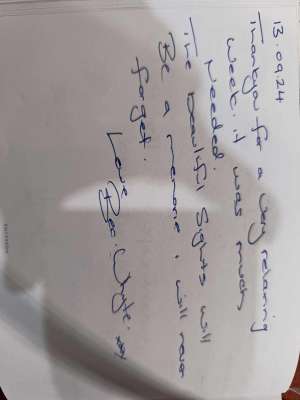 13.09.24
Thankyou for a very relaxing
week. it was much
needed.
The beautiful sights will
Be a memorie i will never
forget.
Love Whyte. xxx